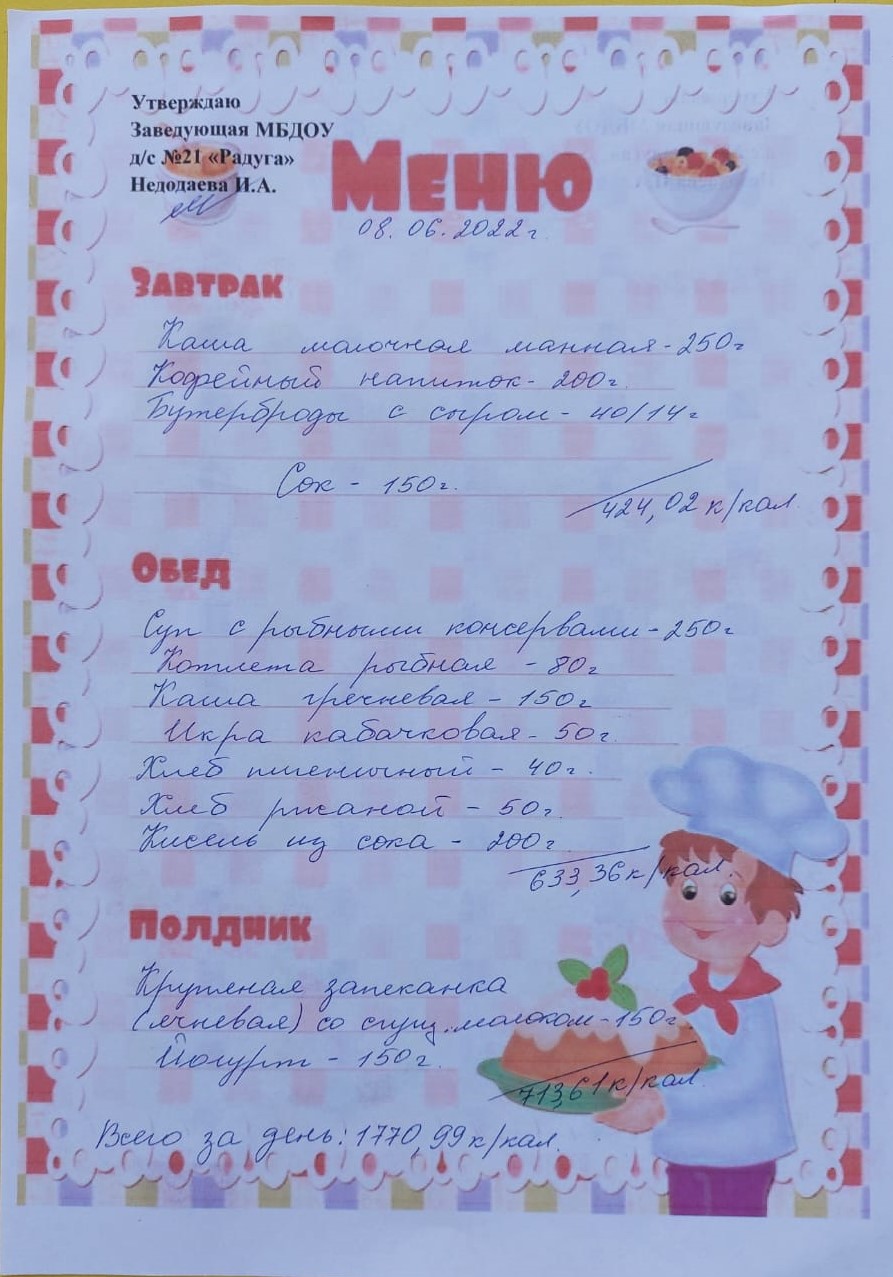 Утверждаю
Заведующая МБДОУ
д/с №21 «Радуга»
Недодаева И.А.
Меню
08.06.2022г
Завтрак
Каша молочная манная - 250г
Кофейный напиток - 200г.
Бутерброды с сыром - 40/14г
Сок - 150г.
424,02 к/кал
Обед
Суп с рыбными консервами - 250г
Котлета рыбная - 80г
Каша гречневая - 150г
Икра кабачковая - 50г.
Хлеб пшеничный - 40г.
Хлеб ржаной - 50г.
Кисель из сока - 200г.
633,36 к/кал.
Полдник
Крупяная запеканка
(ячневая) со сгущ. молоком - 150г.
Йогурт - 150г.
713,61 к/кал
Всего за день: 1770,99 к/кал.